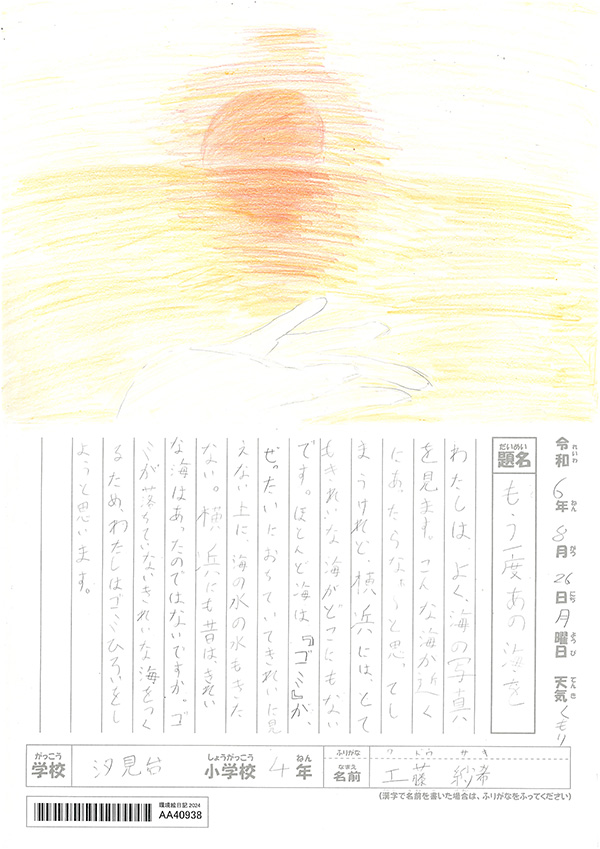 令和6年8月26日月曜日 天気くもり
れいわ ねん がつ にち ようび てんき
だいめい
題名 もう一度あの海を
わたしは、よく、海の写真
を見ます。こんな海が近く
にあったらなぁと思ってし
まうけれど、横兵には、とて
もきれいな海がどこにもない
です。ほとんど海は『ゴミ』が、
ぜったいにおちていてきれいに見
えない上に、海の水のもきた
ない。横兵にも昔は、きれい
な海はあったのではないですか。ゴ
ミが落ちていないきれいな海をつく
るため、わたしはゴミひろいをし
ようと思います。
がっこう しょうがっこう ねん ふりがな クドウ サキ
学校 汐見台 小学校 4年 なまえ 名前 工藤 紗希
(漢字で名前を書いた場合は、ふりがなをふってください)
環境絵日記 2024
AA40938